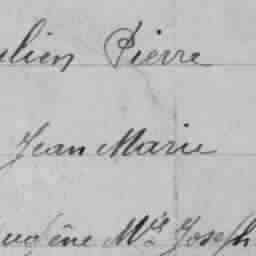 ulien Pierre
Jean Marie
Eugène Mie Joseph